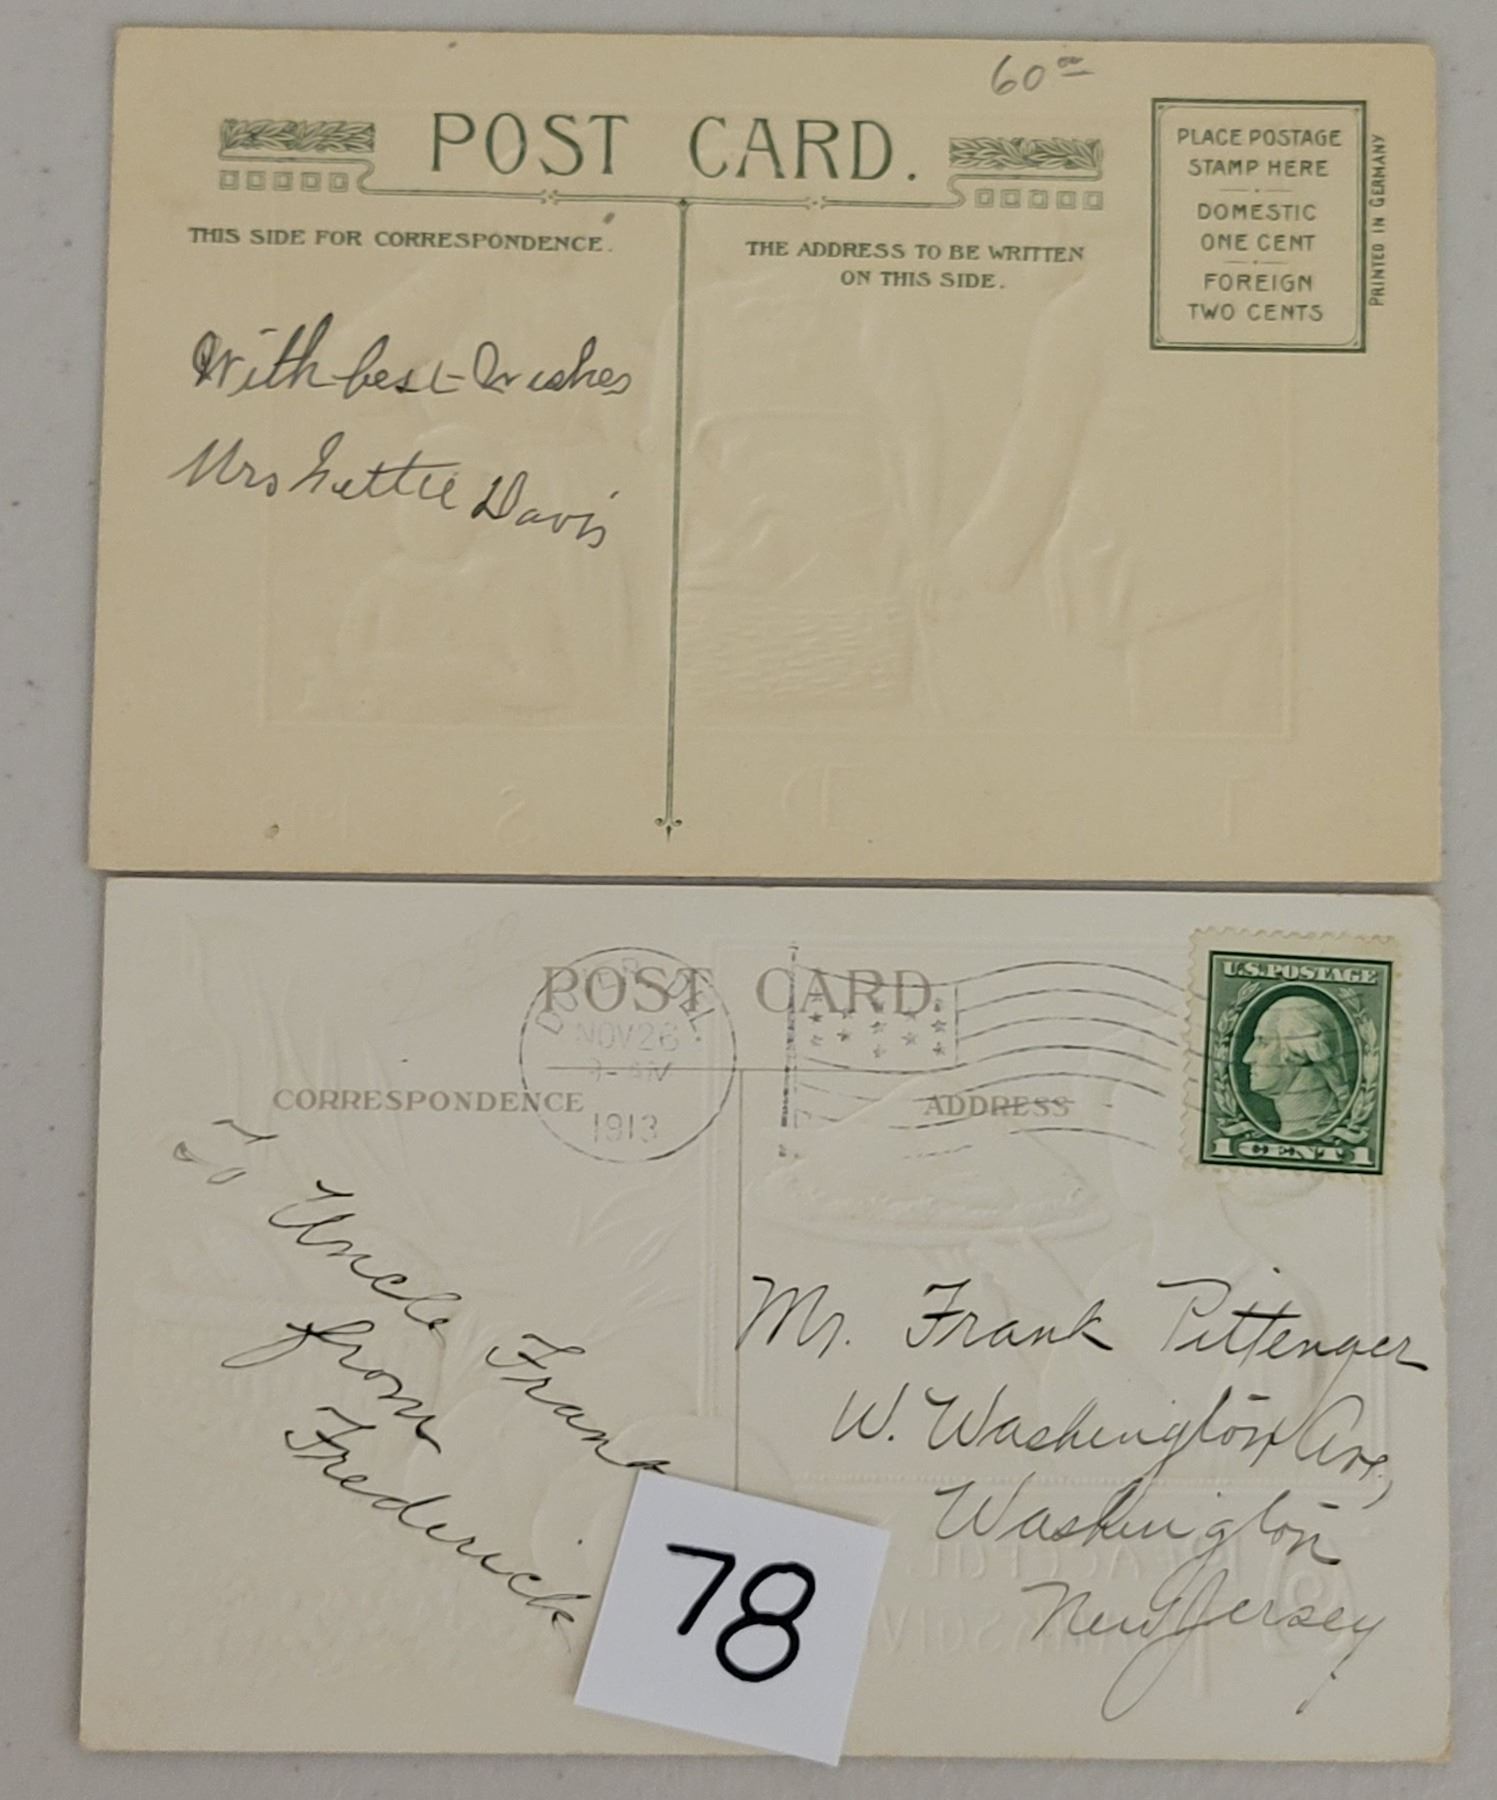 60 00
POST CARD.
PLACE POSTAGE
STAMP HERE
DOMESTIC
ONE CENT
FOREIGN
TWO CENTS
PRINTED IN GERMANY
THIS SIDE FOR CORRESPONDENCE.
THE ADDRESS TO BE WRITTEN
ON THIS SIDE.
With best Wishes
Mrs Nettie Davis
POST CARD
DOVER DEL.
NOV 26
1913
U.S. POSTAGE
1 CENT 1
CORRESPONDENCE
ADDRESS
To Uncle Frank
from
Frederick
Mr. Frank Pittenger
W. Washington Ave,
Washington
New Jersey
78